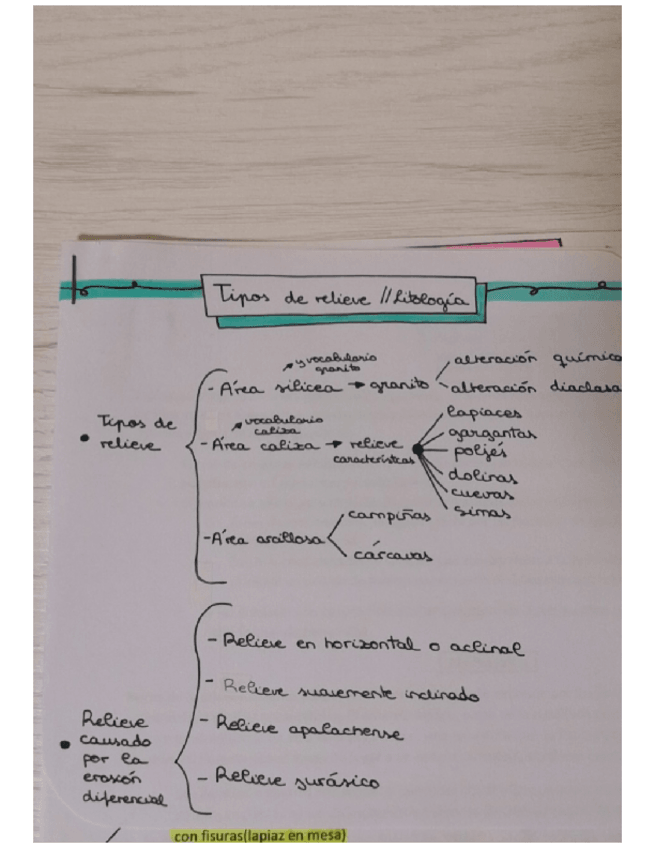 Tipos de relieve // Litología
y vocabulario
granito
- Área silícea → granito
alteración química
alteración diaclasa
• Tipos de
relieve
vocabulario
caliza
- Área caliza → relieve
características
lapiaces
gargantas
poljés
dolinas
cuevas
simas
- Área arcillosa
campiñas
cárcavas
• Relieve
causado
por la
erosión
diferencial
- Relieve en horizontal o aclinal
- Relieve suavemente inclinado
- Relieve apalachense
- Relieve jurásico
con fisuras(lapiaz en mesa)